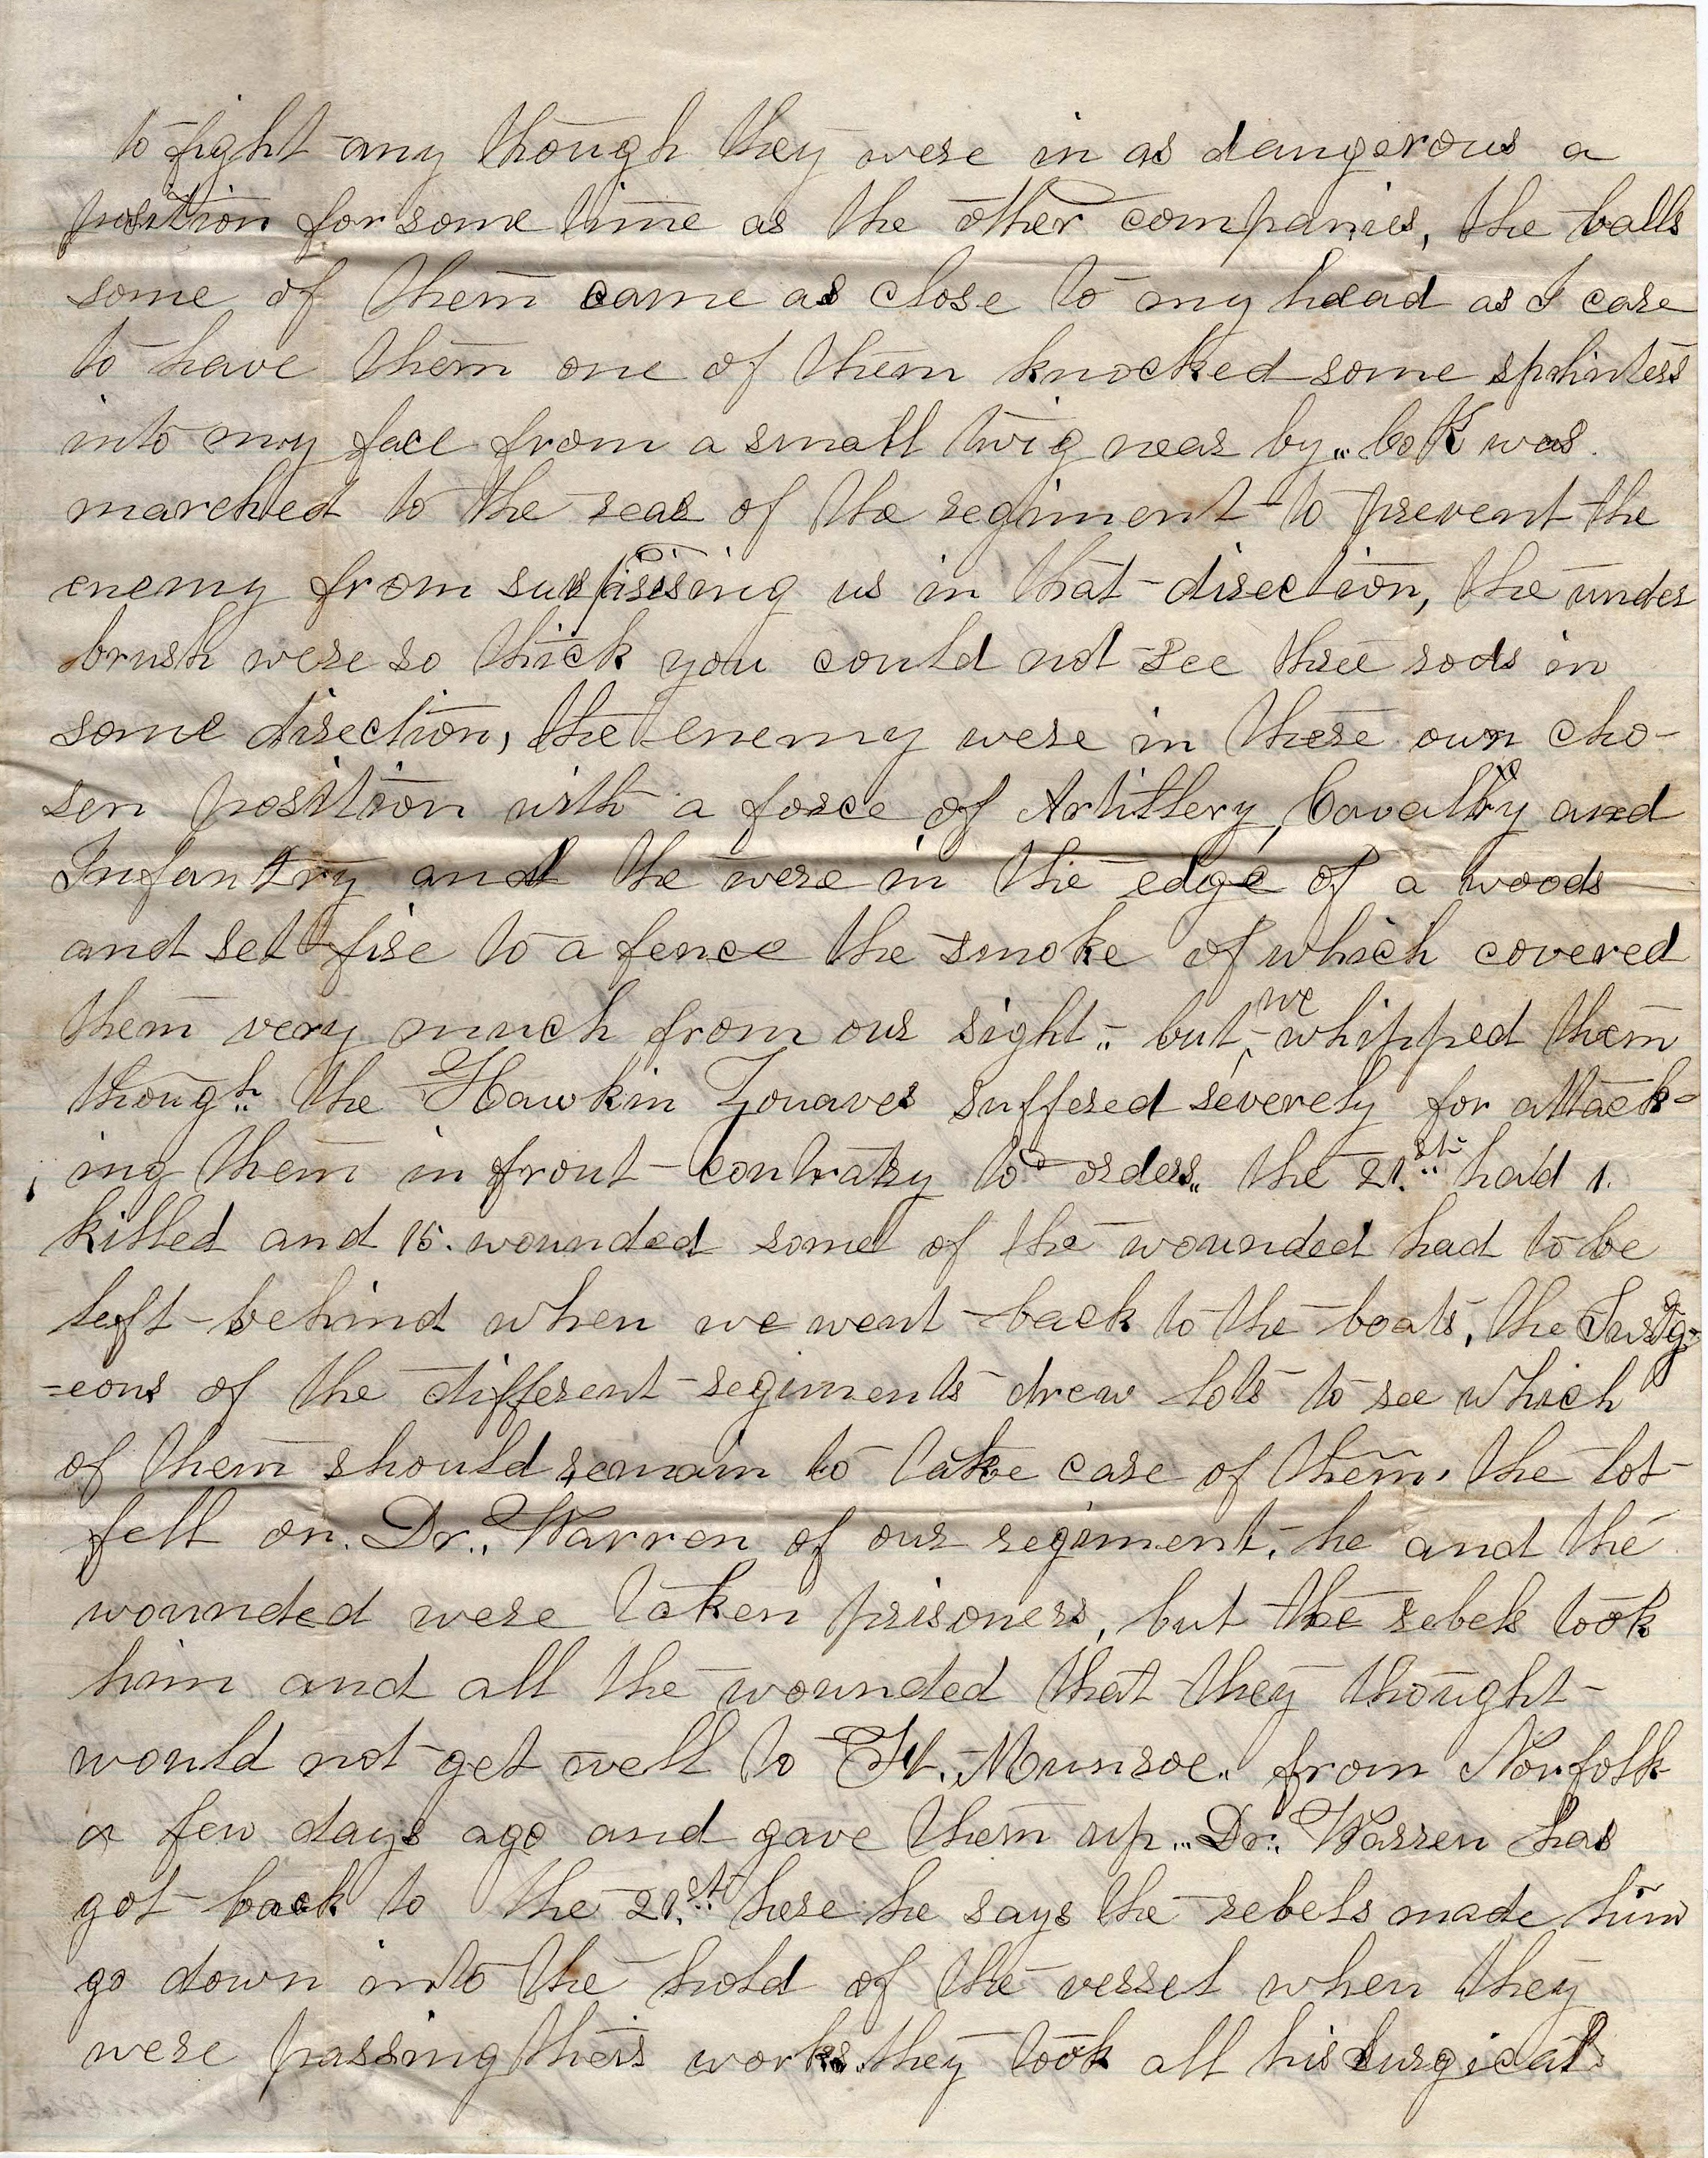 to fight any though they were in as dangerous a
position for some time as the other companies, the balls
some of them came as close to my head as I care
to have them one of them knocked some splinters
into my face from a small twig near by „ Co K was.
marched to the rear of the regiment to prevent the
enemy from surprising us in that direction, the under
brush were so thick you could not see three rods in
some direction, the enemy were in there own cho-
sen position with a force of Artillery, Cavalry and
Infantry and the were in the edge of a woods
and set fire to a fence the smoke of which covered
them very much from our sight „ but we whipped them
though „ the Hawkin Zouaves suffered severely for attack-
ing them in front contrary to orders „ the 21.st had 1.
killed and 15. wounded some of the wounded had to be
left behind when we went back to the boats, the Surg-
=eons of the different regiments drew lots to see which
of them should remain to take care of them, the lot
fell on. Dr. Warren of our regiment, he and the
wounded were taken prisoners, but the rebels took
him and all the wounded that they thought
would not get well to Ft. Munroe „ from Norfolk
a few days ago and gave them up „ Dr. Warren has
got back to the 21.st here he says the rebels made him
go down into the hold of the vessel when they
were passing theis works. they took all his surgical